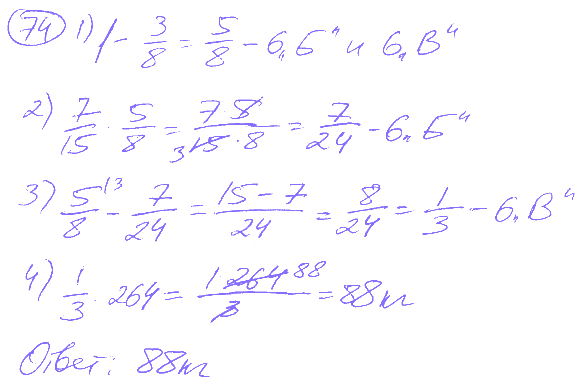 74 1) 1 - 3/8 = 5/8 - в „Б" и в „В"
2) 7/15 · 5/8 = 7·5/15·8 = 7/24 - в „Б"
3) 5/8 - 7/24 = 15-7/24 = 8/24 = 1/3 - в „В"
4) 1/3 · 264 = 1·264/3 88 = 88 кг
Ответ: 88 кг